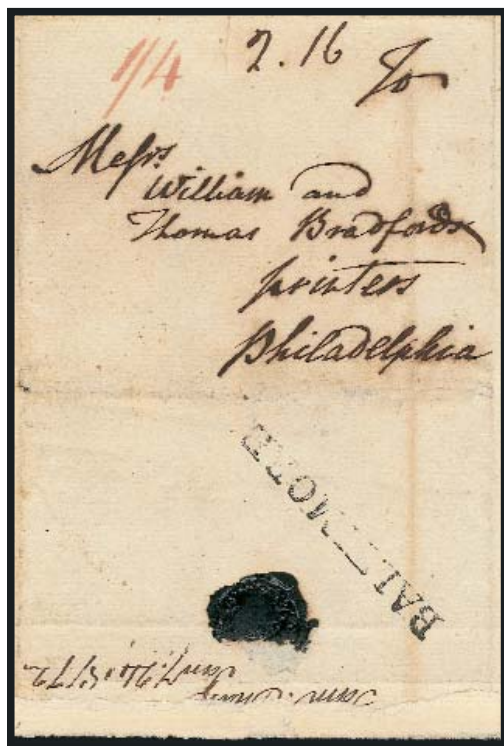 1/4
2.16
To
Messrs
William and
Thomas Bradfords
printers
Philadelphia
BALTIMORE